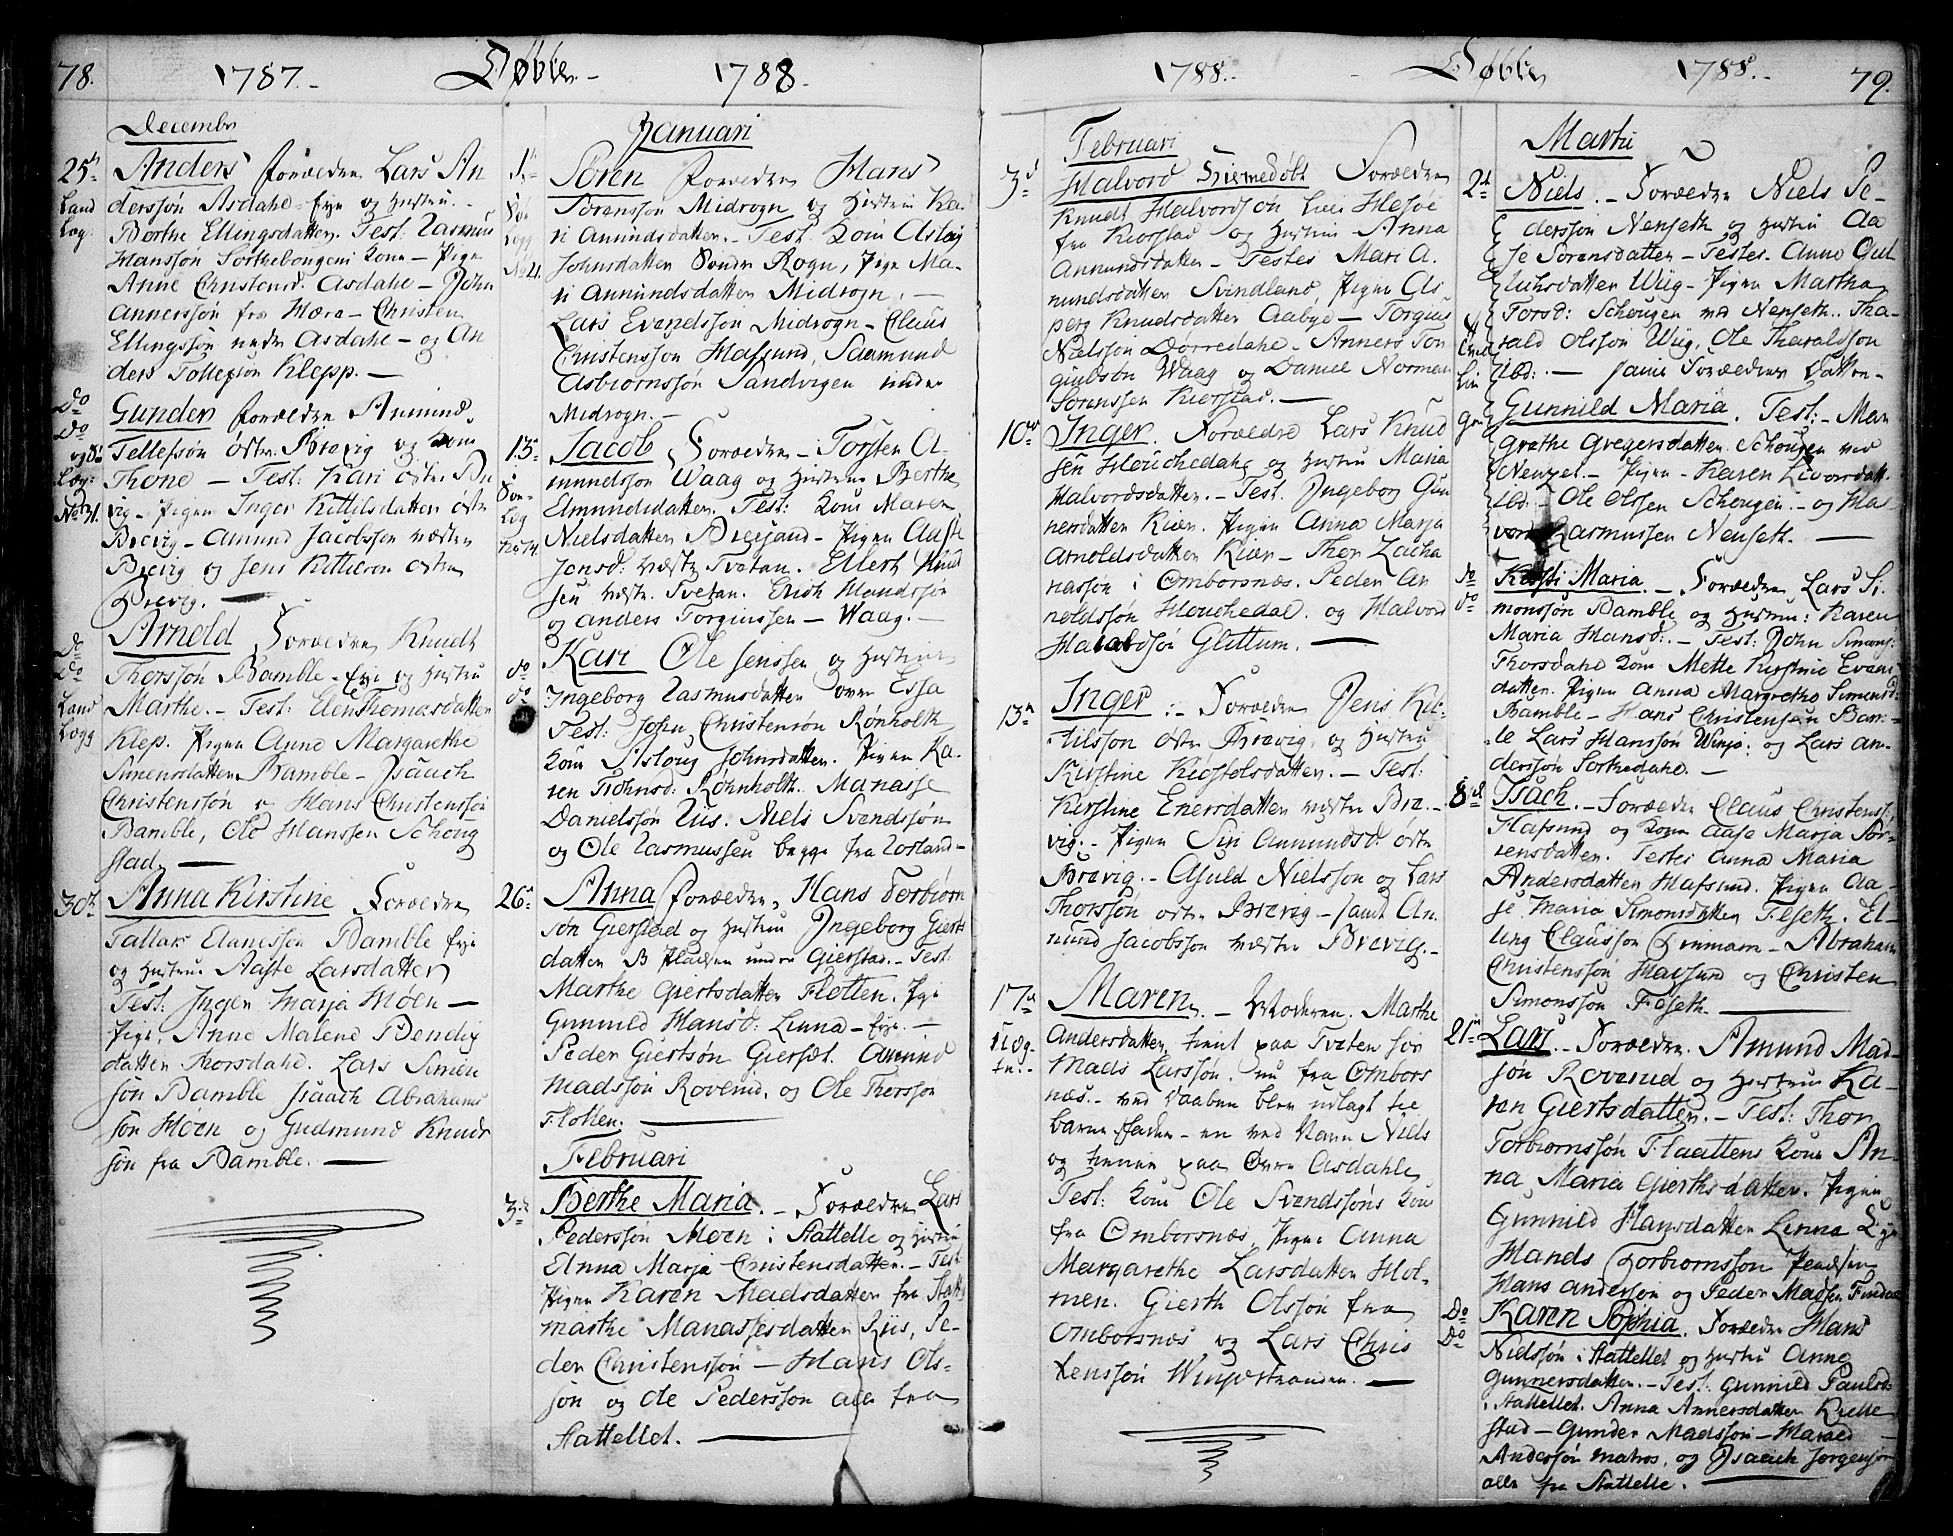 78. 1787.- Døbte.- 1788.-
Decembr
25de Anders forældre Lars An
Land derssøn Asdahl Eye og Hustru.-
Læg. Berthe Ellingsdatter. Test: Rasmus
Hansson kone - Pige
Anne Christensd. Asdahl - John
Anderssøn fra Hæra - Christen
Ellingssøn under Asdahl - og An
ders Tollefsøn Klepp. -
Do Gunder forældre Anmund
Do Tellefsøn østr. Brevig og kone
Læg: Thone - Test: Kari østr. Bre
vig - Pigen Inger Kittilsdatter østr
Brevig - Amund Jacobsson vestre
Brevig og Jens Kittilson østre
Brevig. -
Do Arnold Forældre Knudt
Do Thorssøn Bamble - Eye og Hustru
Land Marthe. - Test: Elen Thomasdatter
Lægg Klep. Pigen Anne Margarethe
Simensdatter Bamble - Isaach
Christenssøn og Hans Christenssøn
Bamble, Ole Hanssen Schoug
stad -
30te Anna Kirstine Forældre
Tallak Bamble Eye
og Hustrue Aaste Larsdatter
Test: Inger Marja Moen -
Pige. Anne Malene Bendix
datter Thorsdahl. Lars Simen
søn Bamble Isaach Abrahams
søn Moen og Gudmund Knuds
søn fra Bamble. -
Januari
1te Søren forældre Hans
Søe Sørenssøn Midrogn og Hustru Ka
Lægg ri Amundsdatter. - Test kone Aslaug
No 21. Johnsdatter Søndre Rogn, Pige Ma-
ri Anmundsdatter Midrogn. -
Lars Evendssøn Midrogn - Claus
Christenssøn Hafsund, Saamund
Asbiørnssøn Sandvigen under
Midrogn. -
13de Jacob Forældre - Torsten A-
Søe- mundsson Waag og Hustrue Berthe
Læg Elmundsdatter. Test: kone Maren
No 74. Nielsdatter - Pigen Aaste
Jensd: vestr Tvetan. Ellert Knud
sen vestr. Tvetan. Erich Mandssøn
og Anders Torgiussen - Waag. -
do Kari Ole Jenssen og Hustrue
do Ingeborg Rasmusdatter
Test: John Christensøn Rønholt
kone Asloug Johnsdatter. Pigen Ka-
ren Johnsd: Rønholt. Manasse
Danielssøn Rus. Niels Svendssøn
og Ole Rasmussen begge fra Rosland -
26de Anna forældre, Hans Torbiørn
søn Gierstad og Hustrue Ingeborg Giert
datter under Gierstad. - Test:
Marthe Giertsdatter Flotten, Pige
Gunnild Hansd: Linna - Eye. -
Peder Giertsøn Amund
Madssøn Roverud, og Ole Thorssøn
Flotten. -
Februari
3de Berthe Maria. - Forældre Lars
Pederssøn Moen i Stattelle og Hustru
Anna Marja Christensdatter. - Test
Pigen Karen Madsdatter fra Statt:
Marthe Manassesdatter Riis, Pe-
der Christenssøn - Hans Ols-
søn og Ole Pederssøn alle fra
Stattellet. -
1788.- - Døbte 1788.- 79.
Februari
3de Halvord Hiemedøbt Forældre
Knudt Halvordsøn
fra Kiørstad og Hustrue Anna
Anmundsdatter - Testes Mari A.
mundsdatter Svindland, Pigen As
berg Knudsdatter Aabye - Torgius
Nielssøn Dørredahl - Anners Ton
Waag og Daniel Norman
Sørenssen Kiørstad. -
10de Inger. Forældre Lars Knud
sen Houchedahl og Hustru Maria
Halvordsdatter. - Test. Ingeborg Gun
nersdatter Kiær. Pigen Anna Marja
Arnoldsdatter Kiær - Thor Zacha
riasson i Omborsnæs. Peder Ar
noldssøn Houchedal. og Halvord
Glittum. -
13de Inger :- Forældre Jens Kit-
tilsson østr Brevig, og Hustrue
Kirstine Kiøstolsdatter. - Test:
Kirstine Enersdatter vestre Bre-
vig. - Pigen Siri Anmundsd. østr
Brevig. - Asuld Nielssøn og Lars
Thorssøn østr Brevig - samt An
mund Jacobssøn vestre Brevig. -
17de Maren. - Moderen. Marthe
Andersdatter, tient paa Tveten for
Mads Larssøn. nu fra Ombors
næs. - ved Daaben blev udlagt til
barne fader - en ved Navn Niels
og tienner paa Øvre Asdahl
Test: kone Ole Svendssøns kone
fra Omborsnæs, Pige Anna
Margarethe Larsdatter Hol-
men. Gierth Olssøn fra
Omborsnæs og Lars Chris
tenssøn Winjestranden. -
Martii
2de Niels. - Forældre Niels Pe-
dersson Nenseth og Hustru Aa
se Sørensdatter - Testes. Anne Gul
luhsdatter Wiig - Pigen Martha
Torsd: Schougen ved Nenseth. Tha-
rald Olsson Wiig, Ole Tharaldson
ibd: - Forældres Datter-
Gunnild Maria. Test: - Mar
grethe Gregersdatter Schougen ved
Nenset. Pigen - Karen
ibd: - Ole Olssen Schougen. - og Hal-
vord Rasmussen Nenseth. -
do Kirsti Maria. - Forældre Lars Si
do monssøn Bamble og Hustru: Karen
Maria Hansd: - Test: John Simons:
Thorsdahl kone Mette Kirstine Evens
datter. Pigen Anna Margrethe Simensd
Bamble - Hans Christensøn Bam-
ble Lars Hanssøn Winje. og Lars An-
derssøn Sortedahl. -
8de Isach. - Forældre Claus Christens:
Hafsund og kone Aase Marja Sør-
rensdatter. Testes Anna Maria
Andersdatter Hafsund. Pigen Aa-
se Maria Simonsdatter Feseth. El-
ling Claussøn - Abraham
Christenssøn Hafsund og Christen
Simonssøn Feseth. -
21de Lars. - Forældre. Amund Mad-
søn Roverud og Hustrue Ka-
ren Giertsdatter. - Test: Thor
Torbiørnssøn Flaattens kone An-
na Maria Giertsdatter. Pigen
Gunnild Hansdatter Linna Eye
Hands Torbiørnssøn
Hans Anderson og Peder Madsen
Do Karen Sophia. Forældre Hans
Do Nielssøn i Stattellet og Hustru Anne
Gunnersdatter. - Test. Gunnild Paulsd:
i Stattellet. Anna Annersdatter Kielle
stad - Gunder Madssøn - Harald -
Anderssøn Matros, og Isaach Jørgenssøn
alle fra Stattelle. -